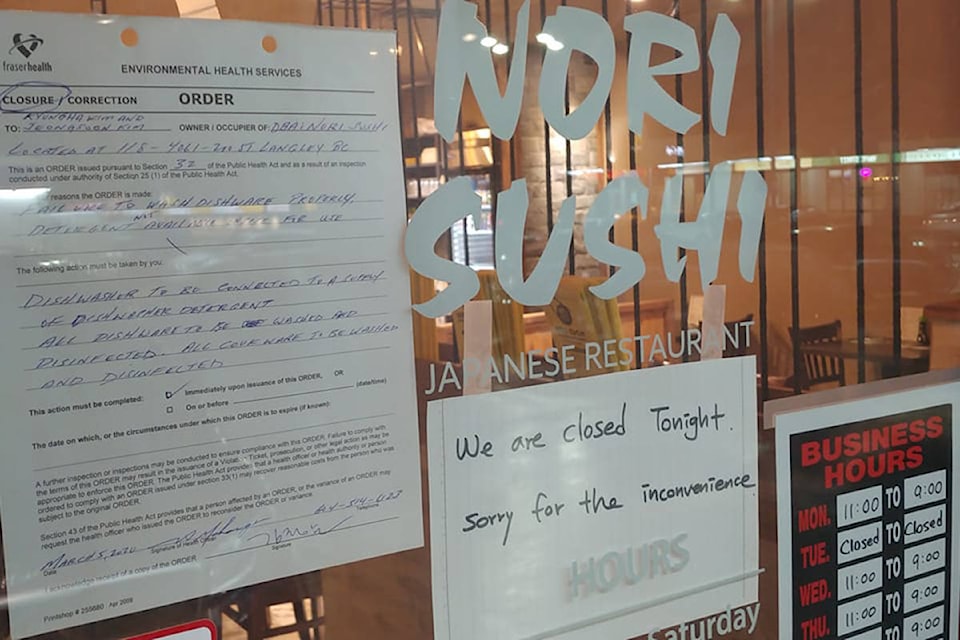 fraserhealth
ENVIRONMENTAL HEALTH SERVICES
CLOSURE / CORRECTION ORDER
KYUNGHA KIM AND
TO: JEONGSOON KIM OWNER / OCCUPIER OF DBA: NORI SUSHI
LOCATED AT 118 - 4061 - 200 ST LANGLEY BC
This is an ORDER issued pursuant to Section 32 of the Public Health Act and as a result of an inspection
conducted under authority of Section 25 (1) of the Public Health Act.
reasons the ORDER is made:
FAILURE TO WASH DISHWARE PROPERLY.
DETERGENT NOT AVAILABLE FOR USE
The following action must be taken by you:
DISHWASHER TO BE CONNECTED TO A SUPPLY
OF DISHWASHER DETERGENT
ALL DISHWARE TO BE WASHED AND
DISINFECTED. ALL COVEWARE TO BE WASHED
AND DISINFECTED
This action must be completed: Immediately upon issuance of this ORDER, OR
On or before (date/time)
The date on which, or the circumstances under which this ORDER is to expire (if known):
A further inspection or inspections may be conducted to ensure compliance with this ORDER. Failure to comply with
the terms of this ORDER may result in the issuance of a Violation Ticket, prosecution, or other legal action as may be
appropriate to enforce this ORDER. The Public Health Act provides that a health officer or health authority or person
ordered to comply with an ORDER issued under section 33(1) may recover reasonable costs from the person who was
subject to the original ORDER.
Section 43 of the Public Health Act provides that a person affected by an ORDER, or the variance of an ORDER may
request the health officer who issued the ORDER to reconsider the ORDER or variance.
MARCH 5, 2024
Date Signature of Health Officer Signature Telephone
I acknowledge receipt of a copy of the ORDER
Printshop # 255680 Apr 2009
NORI
SUSHI
JAPANESE RESTAURANT
We are closed Tonight.
Sorry for the inconvenience
HOURS
Saturday
BUSINESS
HOURS
MON. 11:00 TO 9:00
TUE. Closed TO Closed
WED. 11:00 TO 9:00
THU. 11:00 TO 9:00